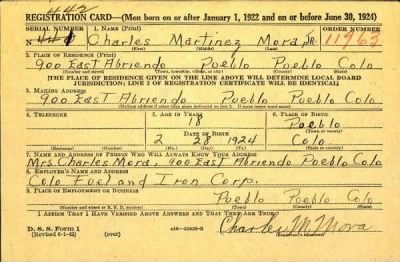 442
REGISTRATION CARD—(Men born on or after January 1, 1922 and on or before June 30, 1924)
SERIAL NUMBER 1. NAME (Print) ORDER NUMBER
N Charles Martinez Mora, JR. 11963
(First) (Middle) (Last)
2. PLACE OF RESIDENCE (Print)
900 East Abriendo Pueblo Pueblo Colo
(Number and street) (Town, township, village, or city) (County) (State)
[THE PLACE OF RESIDENCE GIVEN ON THE LINE ABOVE WILL DETERMINE LOCAL BOARD
JURISDICTION; LINE 2 OF REGISTRATION CERTIFICATE WILL BE IDENTICAL]
3. MAILING ADDRESS
900 East Abriendo Pueblo Pueblo Colo
4. TELEPHONE 5. AGE IN YEARS 6. PLACE OF BIRTH
18 Pueblo
DATE OF BIRTH (Town or county)
2 28 1924 Colo
(Mo.) (Day) (Yr.) (State or country)
7. NAME AND ADDRESS OF PERSON WHO WILL ALWAYS KNOW YOUR ADDRESS
Mrs Charles Mora, 900 East Abriendo Pueblo Colo
8. EMPLOYER'S NAME AND ADDRESS
Colo Fuel and Iron Corp.
9. PLACE OF EMPLOYMENT OR BUSINESS
Pueblo Pueblo Colo
(Number and street or R. F. D. number) (Town) (County) (State)
I AFFIRM THAT I HAVE VERIFIED ABOVE ANSWERS AND THAT THEY ARE TRUE.
D. S. S. Form 1
(Revised 6-1-42) (over) Charles M Mora
(Registrant's signature)